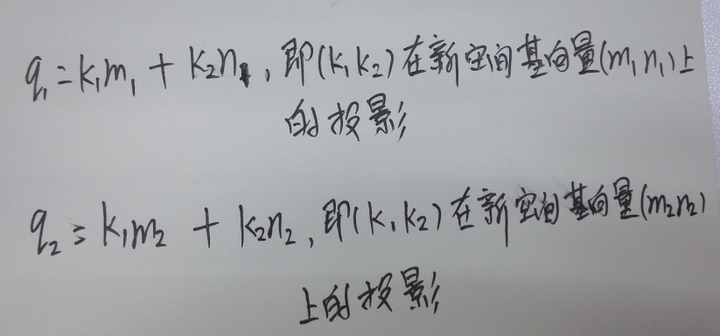 q₁=k₁m₁ + k₂n₁,即(k₁k₂)在新空间基向量(m₁n₁)上
的投影
q₂=k₁m₂ + k₂n₂,即(k₁k₂)在新空间基向量(m₂n₂)
上的投影